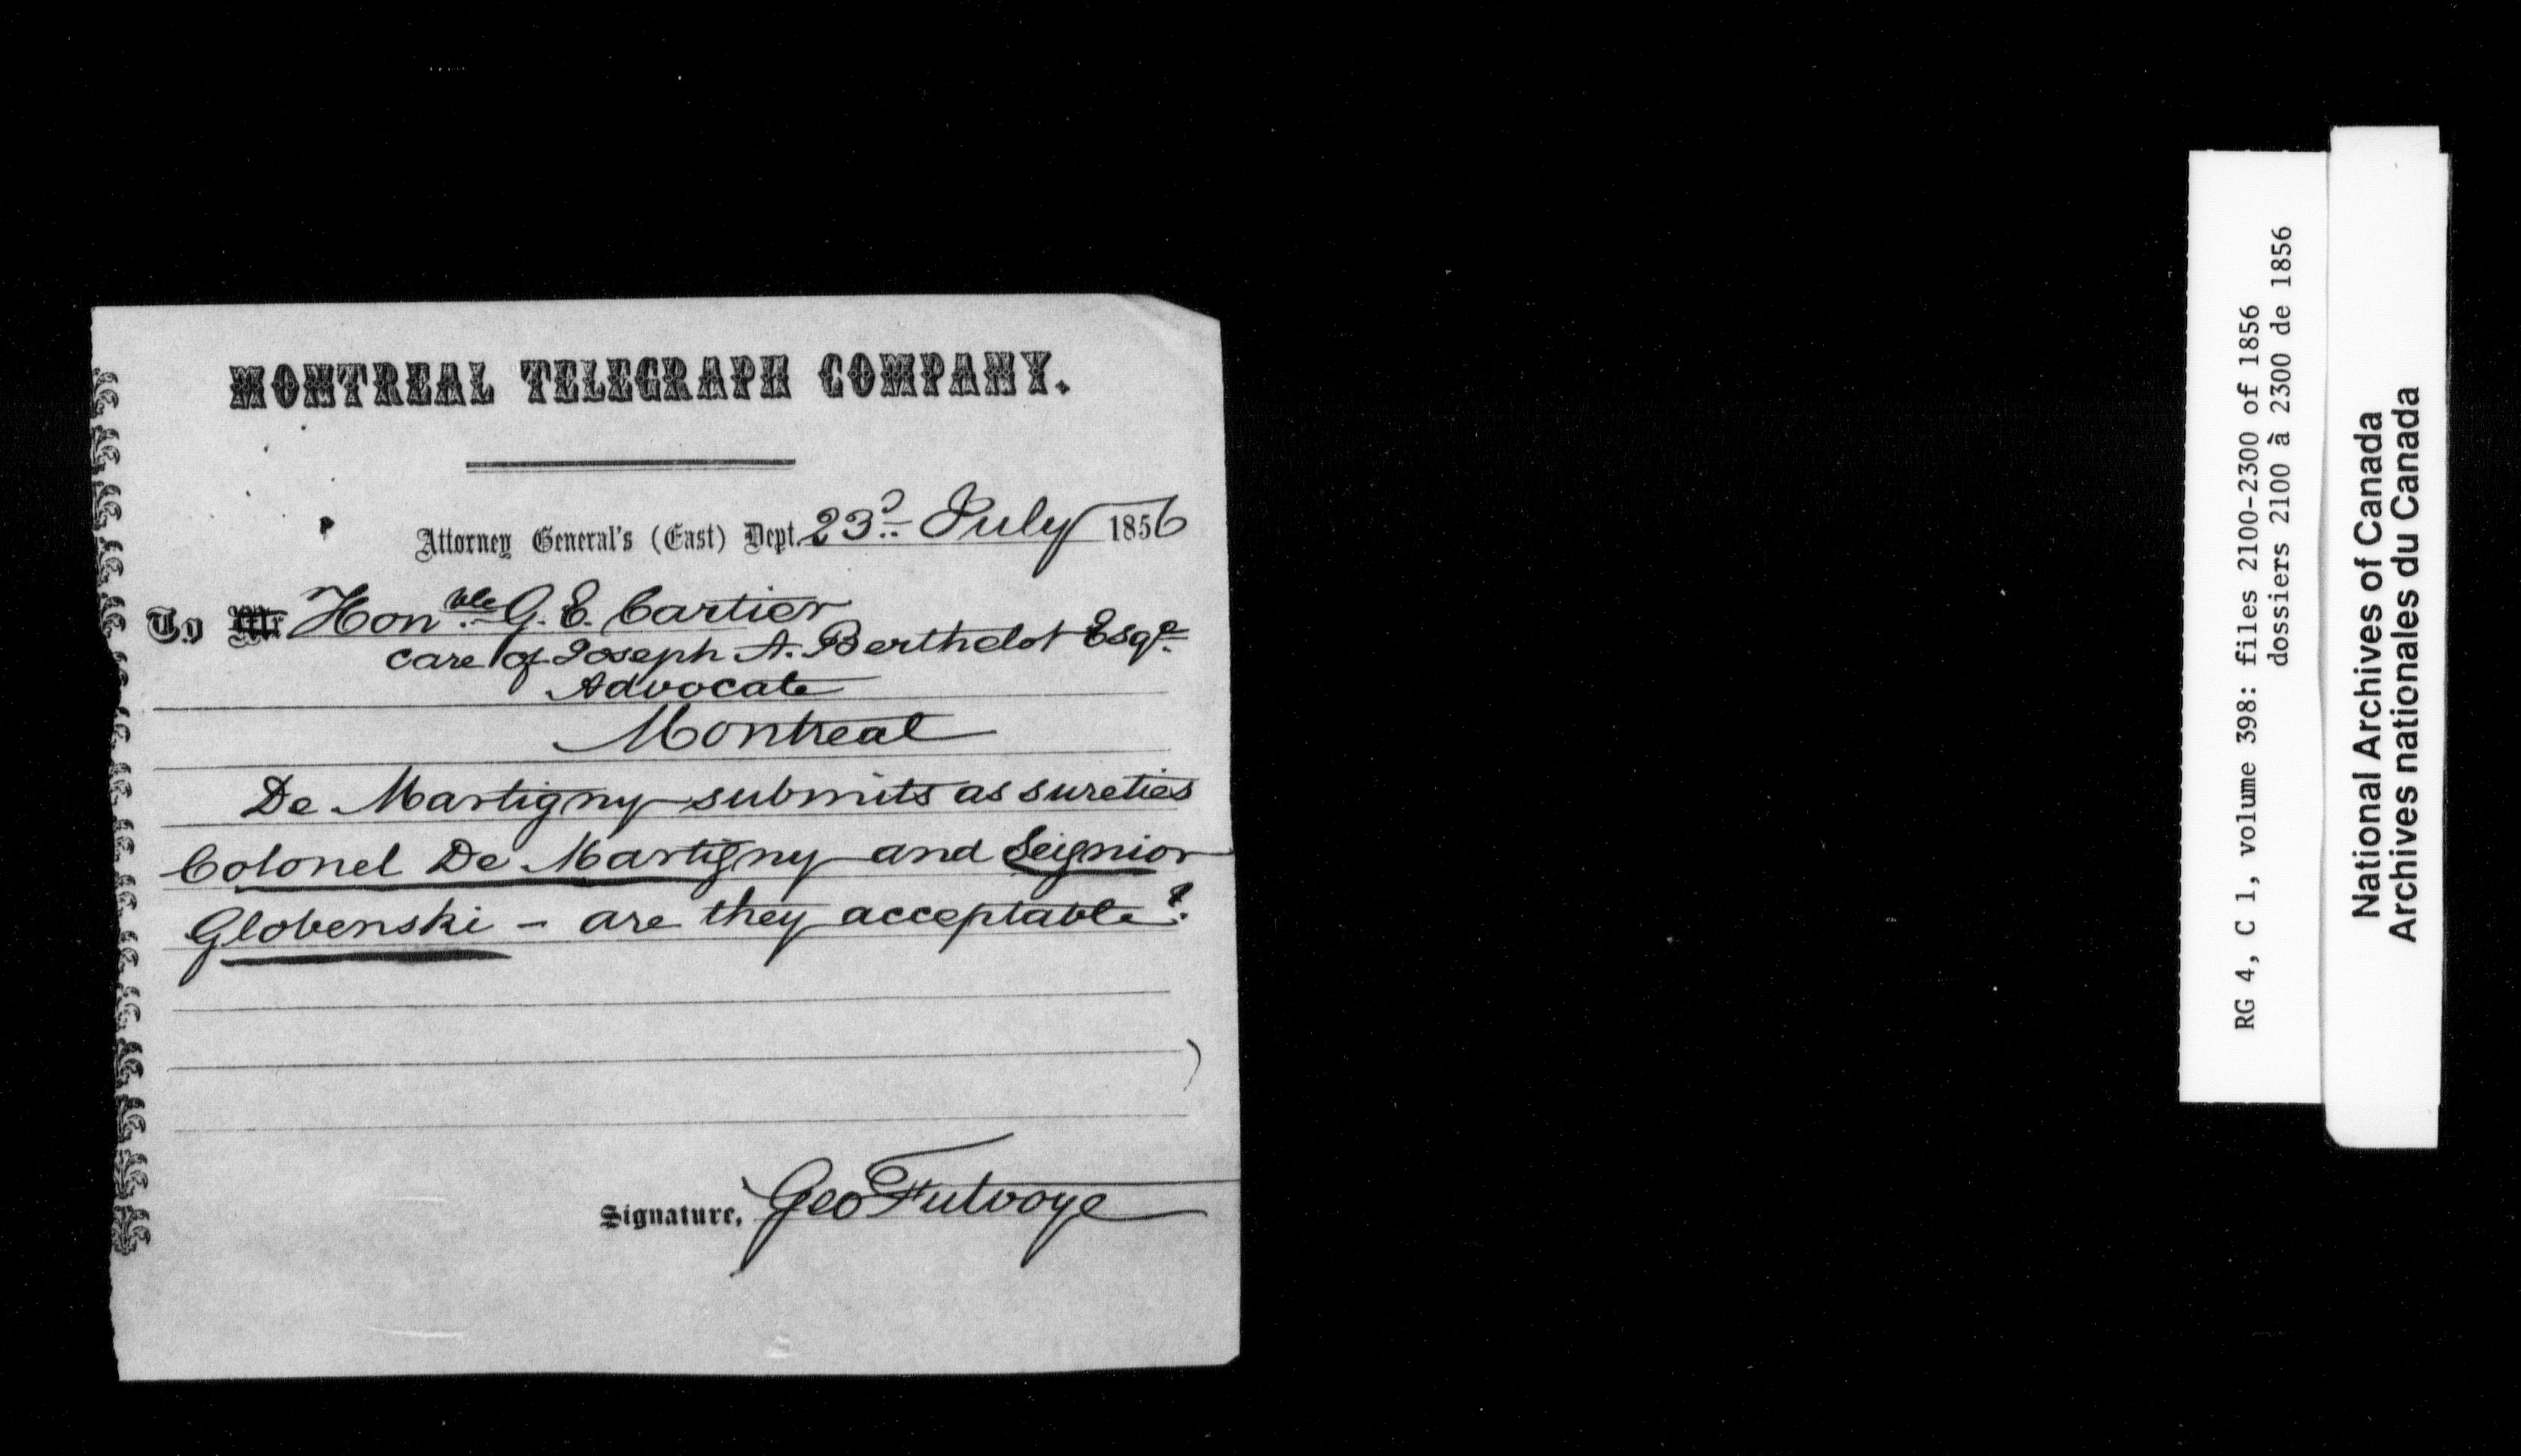 MONTREAL TELEGRAPH COMPANY.
Attorney General's (East) Dept. 23d July 1856
To Mr Honble G. E. Cartier
care of Joseph A. Berthelot Esqe
Advocate
Montreal
De Martigny submits as sureties
Colonel De Martigny and Seignior
Globenski - are they acceptable?
Signature, Geo Futvoye
RG 4, C 1, volume 398: files 2100-2300 of 1856
dossiers 2100 à 2300 de 1856
National Archives of Canada
Archives nationales du Canada